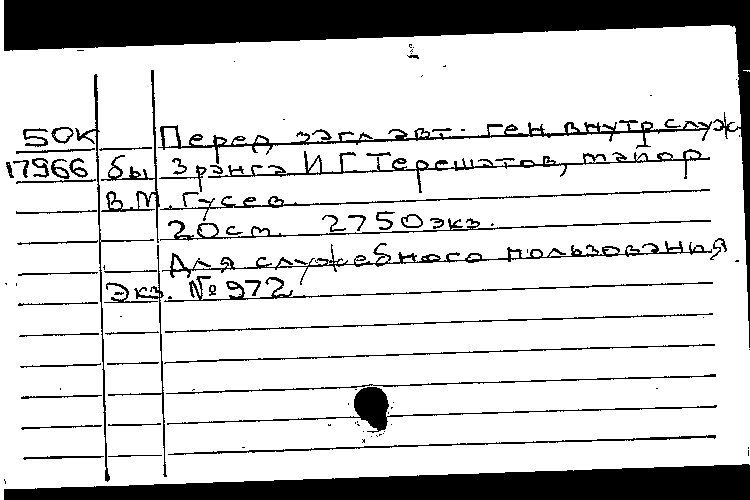 50К Перед загл. авт.: ген. внутр. служ
17966 бы 3 ранга И.Г. Терешатов, майор
В.М. Гусев.
20 см. 2750 экз.
Для служебного пользования
Экз. № 972